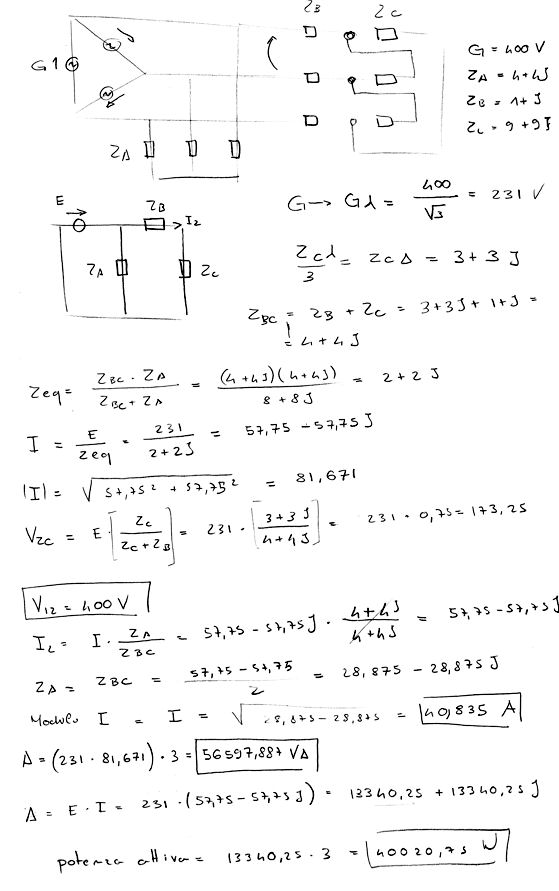 Z_B Z_C
G1
G = 400 V
Z_A = 4+4J
Z_B = 1+J
Z_C = 9+9J
Z_A
E Z_B I_2
Z_A Z_C
G → Gλ = 400/√3 = 231 V
Z_Cλ/3 = Z_CΔ = 3+3J
Z_BC = Z_B + Z_C = 3+3J+1+J =
= 4+4J
Zeq = Z_BC · Z_A / Z_BC + Z_A = (4+4J)(4+4J) / 8+8J = 2+2J
I = E/Zeq = 231/2+2J = 57,75 - 57,75J
|I| = √57,75² + 57,75² = 81,671
V_ZC = E·[Z_C / Z_C+Z_B] = 231·[3+3J / 4+4J] = 231 · 0,75 = 173,25
V_12 = 400 V
I_2 = I · Z_A/Z_BC = 57,75 - 57,75J · 4+4J/4+4J = 57,75 - 57,75J
Z_A = Z_BC = 57,75 - 57,75 / 2 = 28,875 - 28,875J
Modulo I = I = √28,875 - 28,875 = 40,835 A
A = (231 · 81,671) · 3 = 56597,887 VA
A = E · I = 231 · (57,75 - 57,75J) = 13340,25 + 13340,25J
potenza attiva = 13340,25 · 3 = 40020,75 W